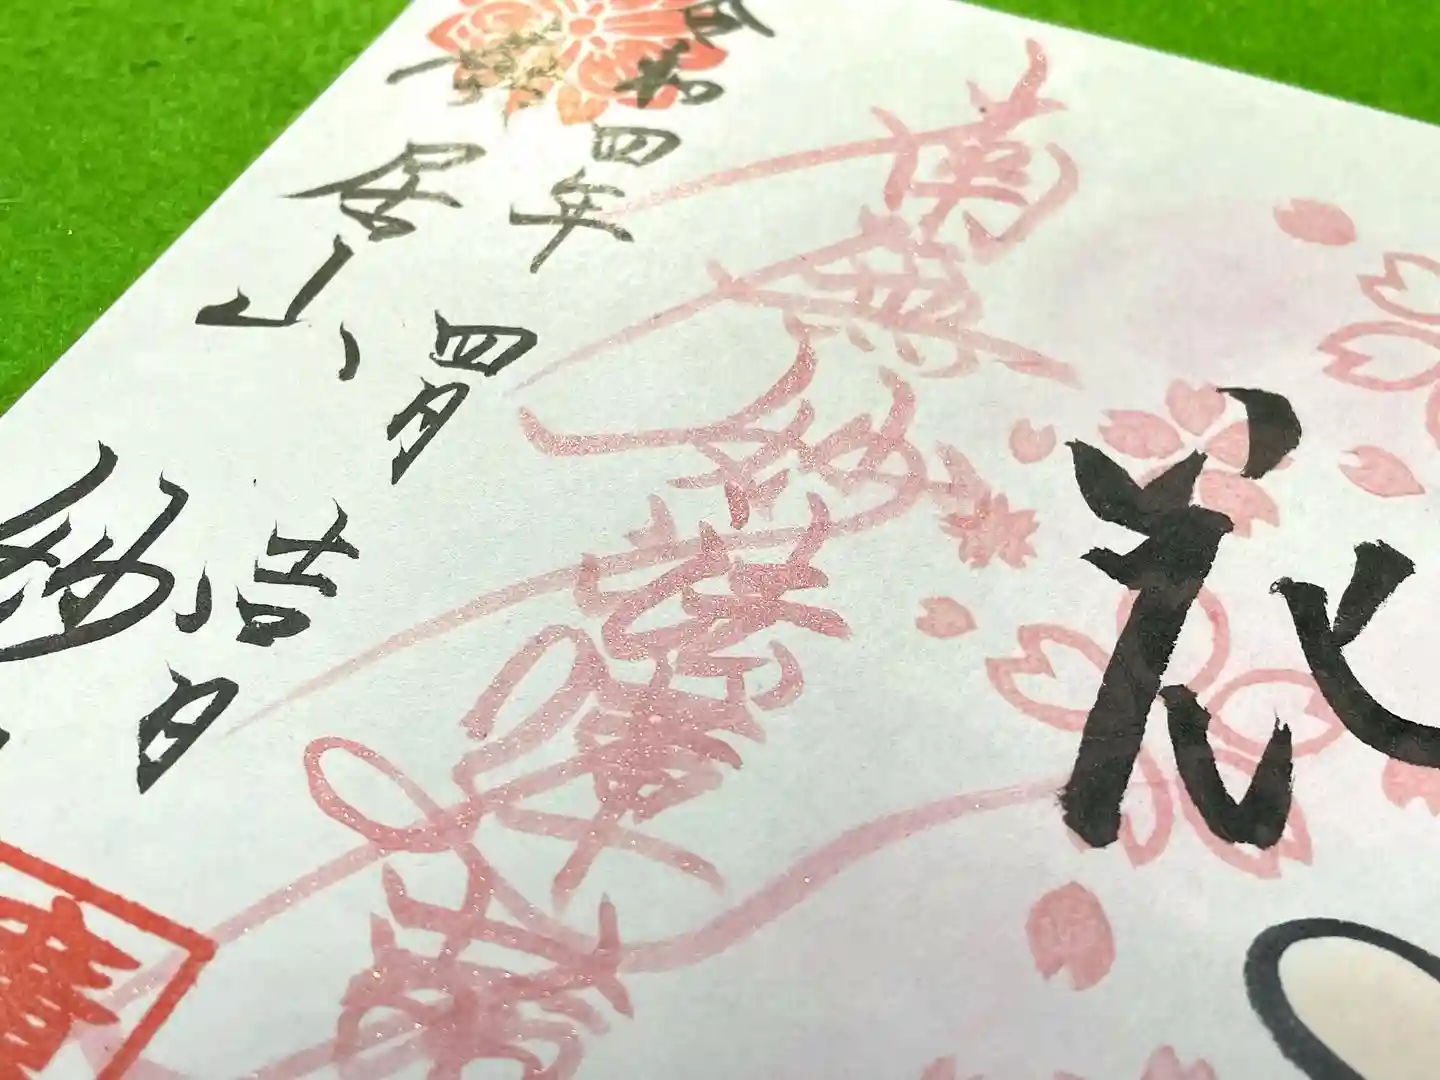 花
南無妙法蓮華経
令和四年四月吉日
居山妙